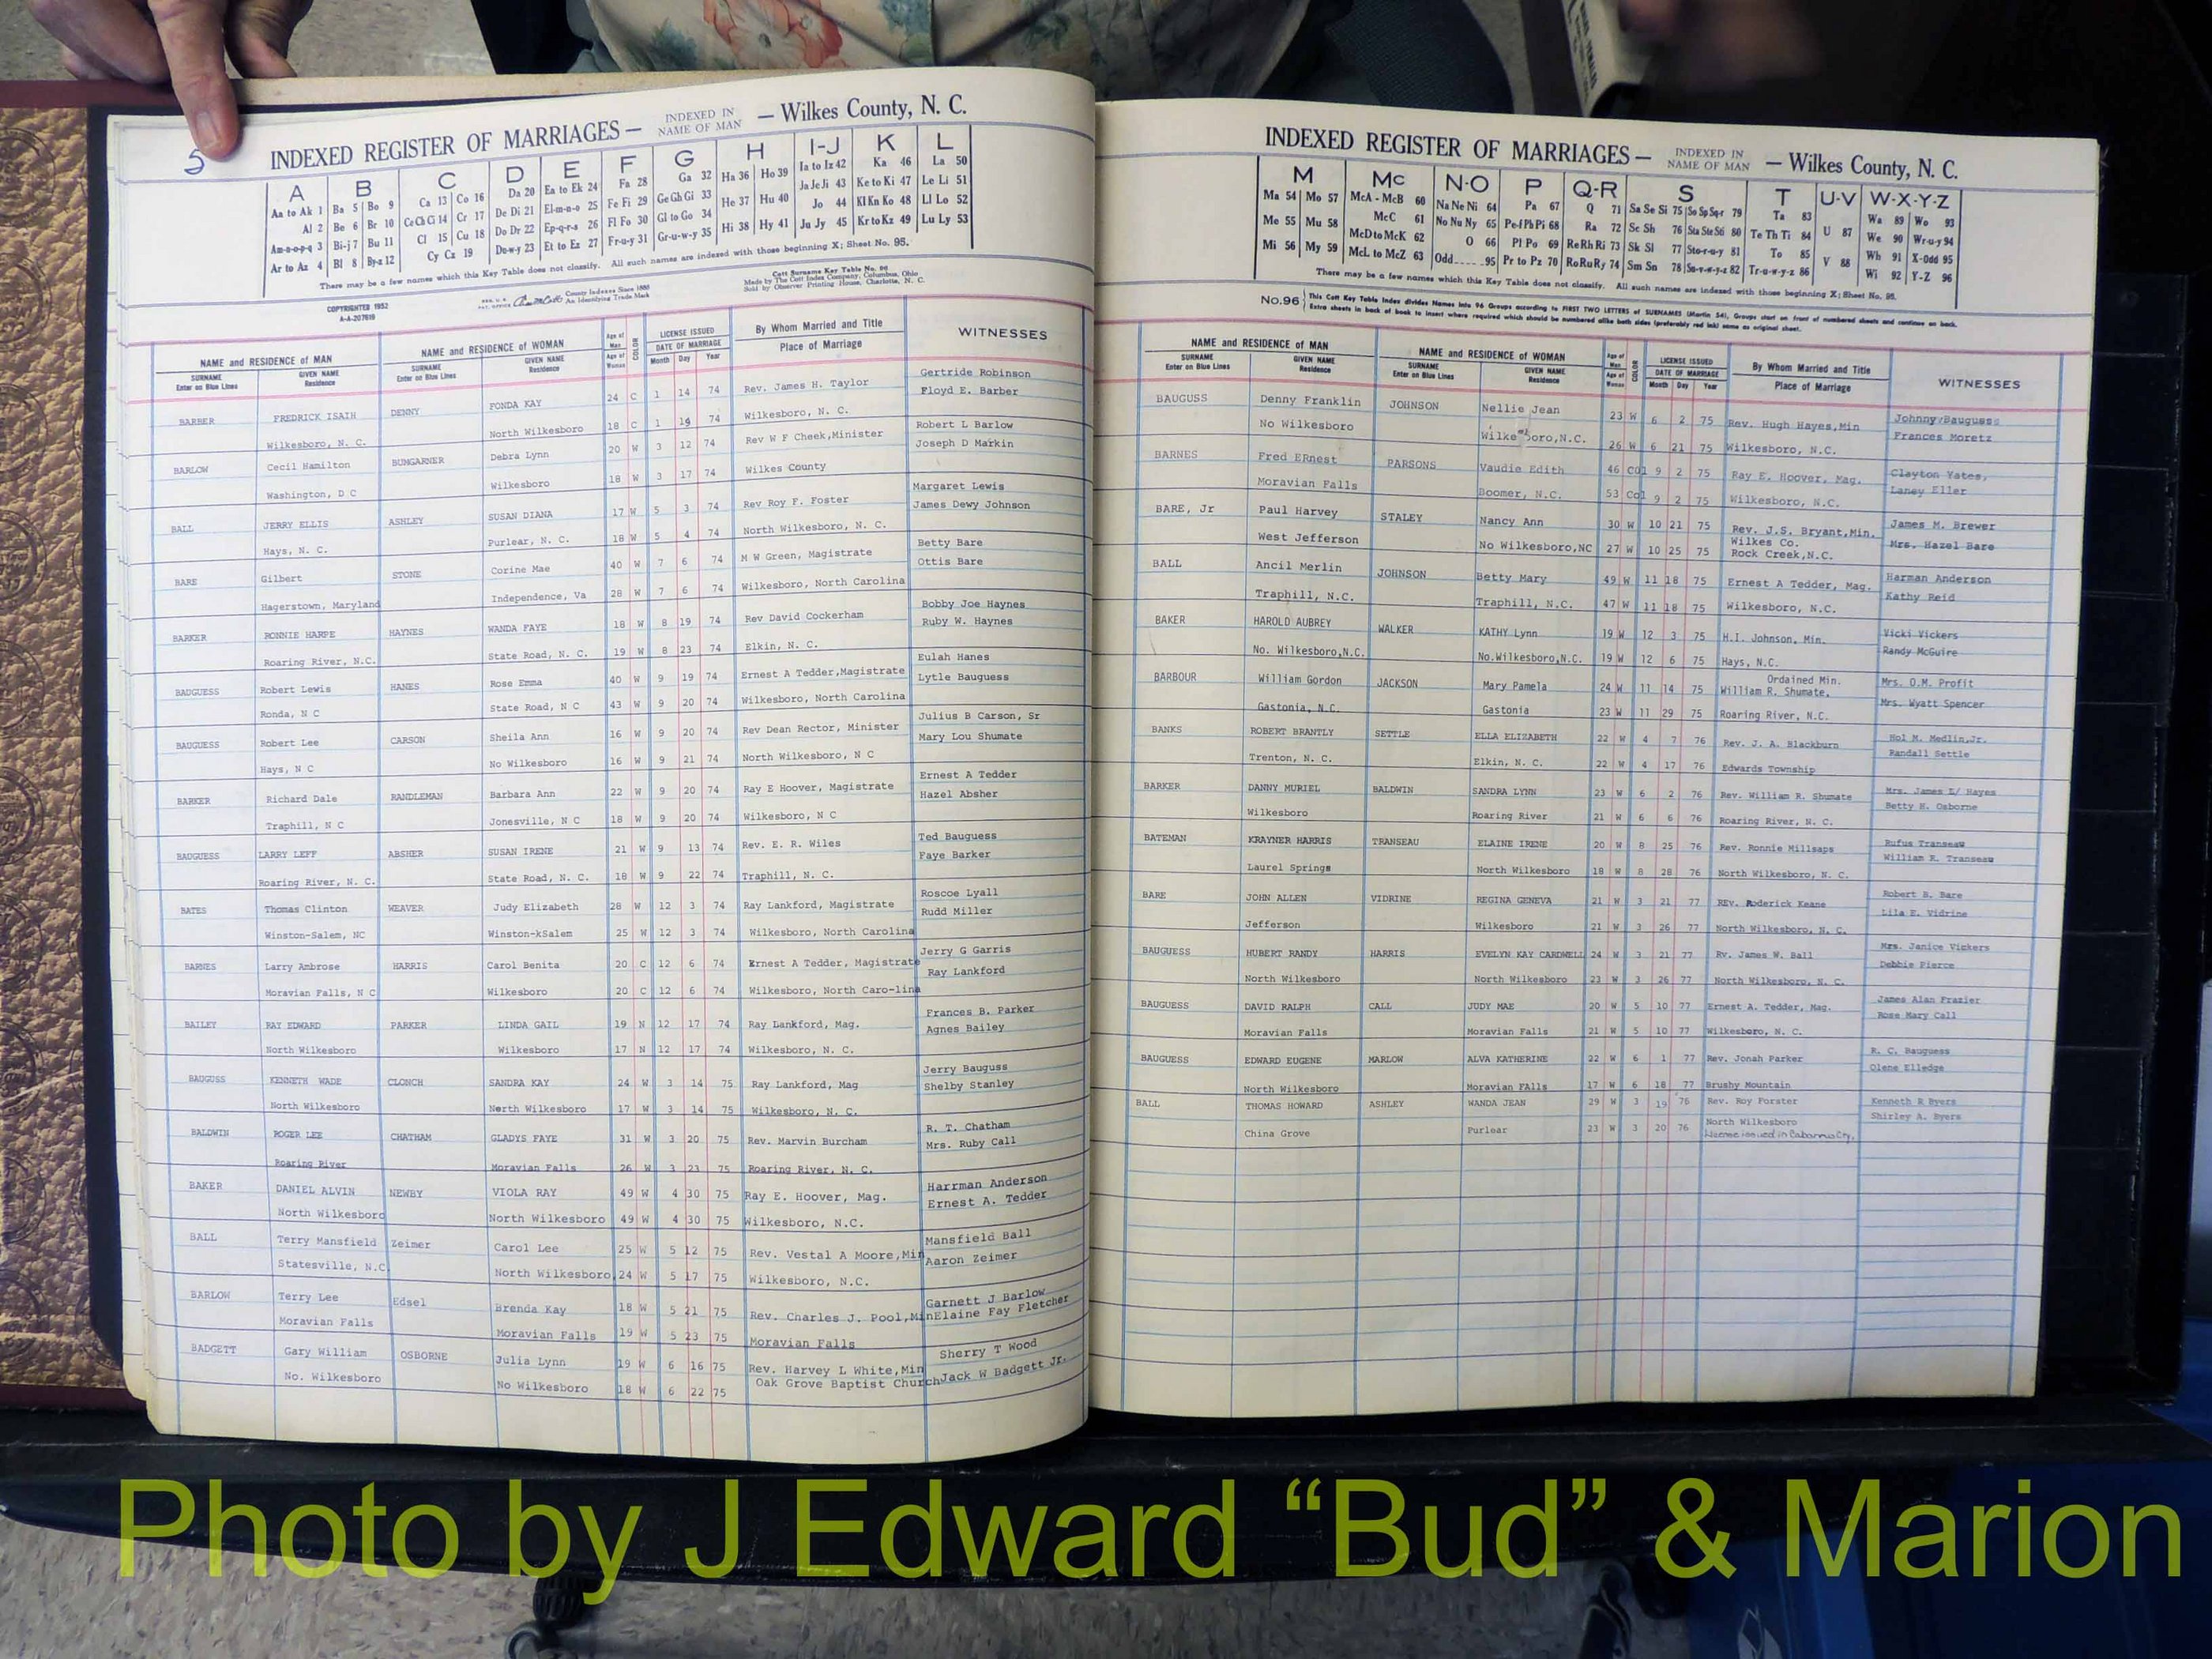 5
INDEXED REGISTER OF MARRIAGES — INDEXED IN NAME OF MAN — Wilkes County, N. C.
A B C D E F G H I-J K L
Aa to Ak 1 Ba 5 Bo 9 Ca 13 Co 16 Da 20 Ea to Ek 24 Fa 28 Ga 32 Ha 36 Ho 39 Ia to Iz 42 Ka 46 La 50
Al 2 Be 6 Br 10 Ce Ch Ci 14 Cr 17 De Di 21 El-m-n-o 25 Fe Fi 29 Ge Gh Gi 33 He 37 Hu 40 Ja Je Ji 43 Ke to Ki 47 Le Li 51
Am-n-o-p-q 3 Bi-j 7 Bu 11 Cl 15 Cu 18 Do Dr 22 Ep-q-r-s 26 Fl Fo 30 Gl to Go 34 Hi 38 Hy 41 Jo 44 Kl Kn Ko 48 Ll Lo 52
Ar to Az 4 Bl 8 By-z 12 Cy Cz 19 Du-w-y 23 Et to Ez 27 Fr-u-y 31 Gr-u-w-y 35 Ju Jy 45 Kr to Kz 49 Lu Ly 53
There may be a few names which this Key Table does not classify. All such names are indexed with those beginning X; Sheet No. 95.
COPYRIGHTED 1952
A-A-207619
County Indexes Since 1888
An Identifying Trade Mark
Cott Surname Key Table No. 96
Made by The Cott Index Company, Columbus, Ohio
Sold by Observer Printing House, Charlotte, N. C.
NAME and RESIDENCE of MAN NAME and RESIDENCE of WOMAN Age of Man COLOR LICENSE ISSUED By Whom Married and Title WITNESSES
SURNAME GIVEN NAME SURNAME GIVEN NAME Age of Woman DATE OF MARRIAGE Place of Marriage
Enter on Blue Lines Residence Enter on Blue Lines Residence Month Day Year
BARBER FREDRICK ISAIH DENNY FONDA KAY 24 C 1 14 74 Rev. James H. Taylor Gertride Robinson
Wilkesboro, N. C. North Wilkesboro 18 C 1 19 74 Wilkesboro, N. C. Floyd E. Barber
BARLOW Cecil Hamilton BUMGARNER Debra Lynn 20 W 3 12 74 Rev W F Cheek,Minister Robert L Barlow
Washington, D C Wilkesboro 18 W 3 17 74 Wilkes County Joseph D Markin
BALL JERRY ELLIS ASHLEY SUSAN DIANA 17 W 5 3 74 Rev Roy F. Foster Margaret Lewis
Hays, N. C. Purlear, N. C. 18 W 5 4 74 North Wilkesboro, N. C. James Dewy Johnson
BARE Gilbert STONE Corine Mae 40 W 7 6 74 M W Green, Magistrate Betty Bare
Hagerstown, Maryland Independence, Va 28 W 7 6 74 Wilkesboro, North Carolina Ottis Bare
BARKER RONNIE HARPE HAYNES WANDA FAYE 18 W 8 19 74 Rev David Cockerham Bobby Joe Haynes
Roaring River, N.C. State Road, N. C. 19 W 8 23 74 Elkin, N. C. Ruby W. Haynes
BAUGUESS Robert Lewis HANES Rose Emma 40 W 9 19 74 Ernest A Tedder,Magistrate Eulah Hanes
Ronda, N C State Road, N C 43 W 9 20 74 Wilkesboro, North Carolina Lytle Bauguess
BAUGUESS Robert Lee CARSON Sheila Ann 16 W 9 20 74 Rev Dean Rector, Minister Julius B Carson, Sr
Hays, N C No Wilkesboro 16 W 9 21 74 North Wilkesboro, N C Mary Lou Shumate
BARKER Richard Dale RANDLEMAN Barbara Ann 22 W 9 20 74 Ray E Hoover, Magistrate Ernest A Tedder
Traphill, N C Jonesville, N C 18 W 9 20 74 Wilkesboro, N C Hazel Absher
BAUGUESS LARRY LEFF ABSHER SUSAN IRENE 21 W 9 13 74 Rev. E. R. Wiles Ted Bauguess
Roaring River, N. C. State Road, N. C. 18 W 9 22 74 Traphill, N. C. Faye Barker
BATES Thomas Clinton WEAVER Judy Elizabeth 28 W 12 3 74 Ray Lankford, Magistrate Roscoe Lyall
Winston-Salem, NC Winston-kSalem 25 W 12 3 74 Wilkesboro, North Carolina Rudd Miller
BARNES Larry Ambrose HARRIS Carol Benita 20 C 12 6 74 Ernest A Tedder, Magistrate Jerry G Garris
Moravian Falls, N C Wilkesboro 20 C 12 6 74 Wilkesboro, North Caro-lina Ray Lankford
BAILEY RAY EDWARD PARKER LINDA GAIL 19 N 12 17 74 Ray Lankford, Mag. Frances B. Parker
North Wilkesboro Wilkesboro 17 N 12 17 74 Wilkesboro, N. C. Agnes Bailey
BAUGUSS KENNETH WADE CLONCH SANDRA KAY 24 W 3 14 75 Ray Lankford, Mag Jerry Bauguss
North Wilkesboro North Wilkesboro 17 W 3 14 75 Wilkesboro, N. C. Shelby Stanley
BALDWIN ROGER LEE CHATHAM GLADYS FAYE 31 W 3 20 75 Rev. Marvin Burcham R. T. Chatham
Roaring River Moravian Falls 26 W 3 23 75 Roaring River, N. C. Mrs. Ruby Call
BAKER DANIEL ALVIN NEWBY VIOLA RAY 49 W 4 30 75 Ray E. Hoover, Mag. Harrman Anderson
North Wilkesboro North Wilkesboro 49 W 4 30 75 Wilkesboro, N.C. Ernest A. Tedder
BALL Terry Mansfield Zeimer Carol Lee 25 W 5 12 75 Rev. Vestal A Moore,Min Mansfield Ball
Statesville, N.C. North Wilkesboro 24 W 5 17 75 Wilkesboro, N.C. Aaron Zeimer
BARLOW Terry Lee Edsel Brenda Kay 18 W 5 21 75 Rev. Charles J. Pool,Min Garnett J Barlow
Moravian Falls Moravian Falls 19 W 5 23 75 Moravian Falls Elaine Fay Fletcher
BADGETT Gary William OSBORNE Julia Lynn 19 W 6 16 75 Rev. Harvey L White,Min Sherry T Wood
No. Wilkesboro No Wilkesboro 18 W 6 22 75 Oak Grove Baptist Church Jack W Badgett Jr.
INDEXED REGISTER OF MARRIAGES — INDEXED IN NAME OF MAN — Wilkes County, N. C.
M Mc N-O P Q-R S T U-V W-X-Y-Z
Ma 54 Mo 57 McA - McB 60 Na Ne Ni 64 Pa 67 Q 71 Sa Se Si 75 So Sp Sq-r 79 Ta 83 U 87 Wa 89 Wo 93
Me 55 Mu 58 McC 61 No Nu Ny 65 Pe-f Ph Pi 68 Ra 72 Sc Sh 76 Sta Ste Sti 80 Te Th Ti 84 We 90 Wr-u-y 94
Mi 56 My 59 McD to McK 62 O 66 Pl Po 69 Re Rh Ri 73 Sk Sl 77 Sto-r-u-y 81 To 85 V 88 Wh 91 X-Odd 95
McL to McZ 63 Odd 95 Pr to Pz 70 Ro Ru Ry 74 Sm Sn 78 Su-v-w-y-z 82 Tr-u-w-y-z 86 Wi 92 Y-Z 96
There may be a few names which this Key Table does not classify. All such names are indexed with those beginning X; Sheet No. 95.
No.96 This Cott Key Table Index divides Names into 96 Groups according to FIRST TWO LETTERS of SURNAMES (Martin 54), Groups start on front of numbered sheets and continue on back.
Extra sheets in back of book to insert where required which should be numbered alike both sides (preferably red ink) same as original sheet.
NAME and RESIDENCE of MAN NAME and RESIDENCE of WOMAN Age of Man COLOR LICENSE ISSUED By Whom Married and Title WITNESSES
SURNAME GIVEN NAME SURNAME GIVEN NAME Age of Woman DATE OF MARRIAGE Place of Marriage
Enter on Blue Lines Residence Enter on Blue Lines Residence Month Day Year
BAUGUSS Denny Franklin JOHNSON Nellie Jean 23 W 6 2 75 Rev. Hugh Hayes,Min Johnny Bauguss
No Wilkesboro Wilkesboro,N.C. 26 W 6 21 75 Wilkesboro, N.C. Frances Moretz
BARNES Fred ERnest PARSONS Vaudie Edith 46 Col 9 2 75 Ray E. Hoover, Mag. Clayton Yates,
Moravian Falls Boomer, N.C. 53 Col 9 2 75 Wilkesboro, N.C. Laney Eller
BARE, Jr Paul Harvey STALEY Nancy Ann 30 W 10 21 75 Rev. J.S. Bryant,Min. James M. Brewer
West Jefferson No Wilkesboro,NC 27 W 10 25 75 Wilkes Co. Rock Creek,N.C. Mrs. Hazel Bare
BALL Ancil Merlin JOHNSON Betty Mary 49 W 11 18 75 Ernest A Tedder, Mag. Harman Anderson
Traphill, N.C. Traphill, N.C. 47 W 11 18 75 Wilkesboro, N.C. Kathy Reid
BAKER HAROLD AUBREY WALKER KATHY Lynn 19 W 12 3 75 H.I. Johnson, Min. Vicki Vickers
No. Wilkesboro,N.C. No.Wilkesboro,N.C. 19 W 12 6 75 Hays, N.C. Randy McGuire
BARBOUR William Gordon JACKSON Mary Pamela 24 W 11 14 75 Ordained Min. William R. Shumate, Mrs. O.M. Profit
Gastonia, N.C. Gastonia 23 W 11 29 75 Roaring River, N.C. Mrs. Wyatt Spencer
BANKS ROBERT BRANTLY SETTLE ELLA ELIZABETH 22 W 4 7 76 Rev. J. A. Blackburn Hol M. Medlin,Jr.
Trenton, N. C. Elkin, N. C. 22 W 4 17 76 Edwards Township Randall Settle
BARKER DANNY MURIEL BALDWIN SANDRA LYNN 23 W 6 2 76 Rev. William R. Shumate Mrs. James L/ Hayes
Wilkesboro Roaring River 21 W 6 6 76 Roaring River, N. C. Betty H. Osborne
BATEMAN KRAYNER HARRIS TRANSEAU ELAINE IRENE 20 W 8 25 76 Rev. Ronnie Millsaps Rufus Transeau
Laurel Springs North Wilkesboro 18 W 8 28 76 North Wilkesboro, N. C. William R. Transeau
BARE JOHN ALLEN VIDRINE REGINA GENEVA 21 W 3 21 77 REv. Roderick Keane Robert B. Bare
Jefferson Wilkesboro 21 W 3 26 77 North Wilkesboro, N. C. Lila E. Vidrine
BAUGUESS HUBERT RANDY HARRIS EVELYN KAY CARDWELL 24 W 3 21 77 Rv. James W. Ball Mrs. Janice Vickers
North Wilkesboro North Wilkesboro 23 W 3 26 77 North Wilkesboro, N. C. Debbie Pierce
BAUGUESS DAVID RALPH CALL JUDY MAE 20 W 5 10 77 Ernest A. Tedder, Mag. James Alan Frazier
Moravian Falls Moravian Falls 21 W 5 10 77 Wilkesboro, N. C. Rose Mary Call
BAUGUESS EDWARD EUGENE MARLOW ALVA KATHERINE 22 W 6 1 77 Rev. Jonah Parker R. C. Bauguess
North Wilkesboro Moravian FAlls 17 W 6 18 77 Brushy Mountain Olene Elledge
BALL THOMAS HOWARD ASHLEY WANDA JEAN 29 W 3 19 76 Rev. Roy Forster Kenneth R Byers
China Grove Purlear 23 W 3 20 76 North Wilkesboro Shirley A. Byers
License issued in Cabarrus Cty.
Photo by J Edward “Bud” & Marion